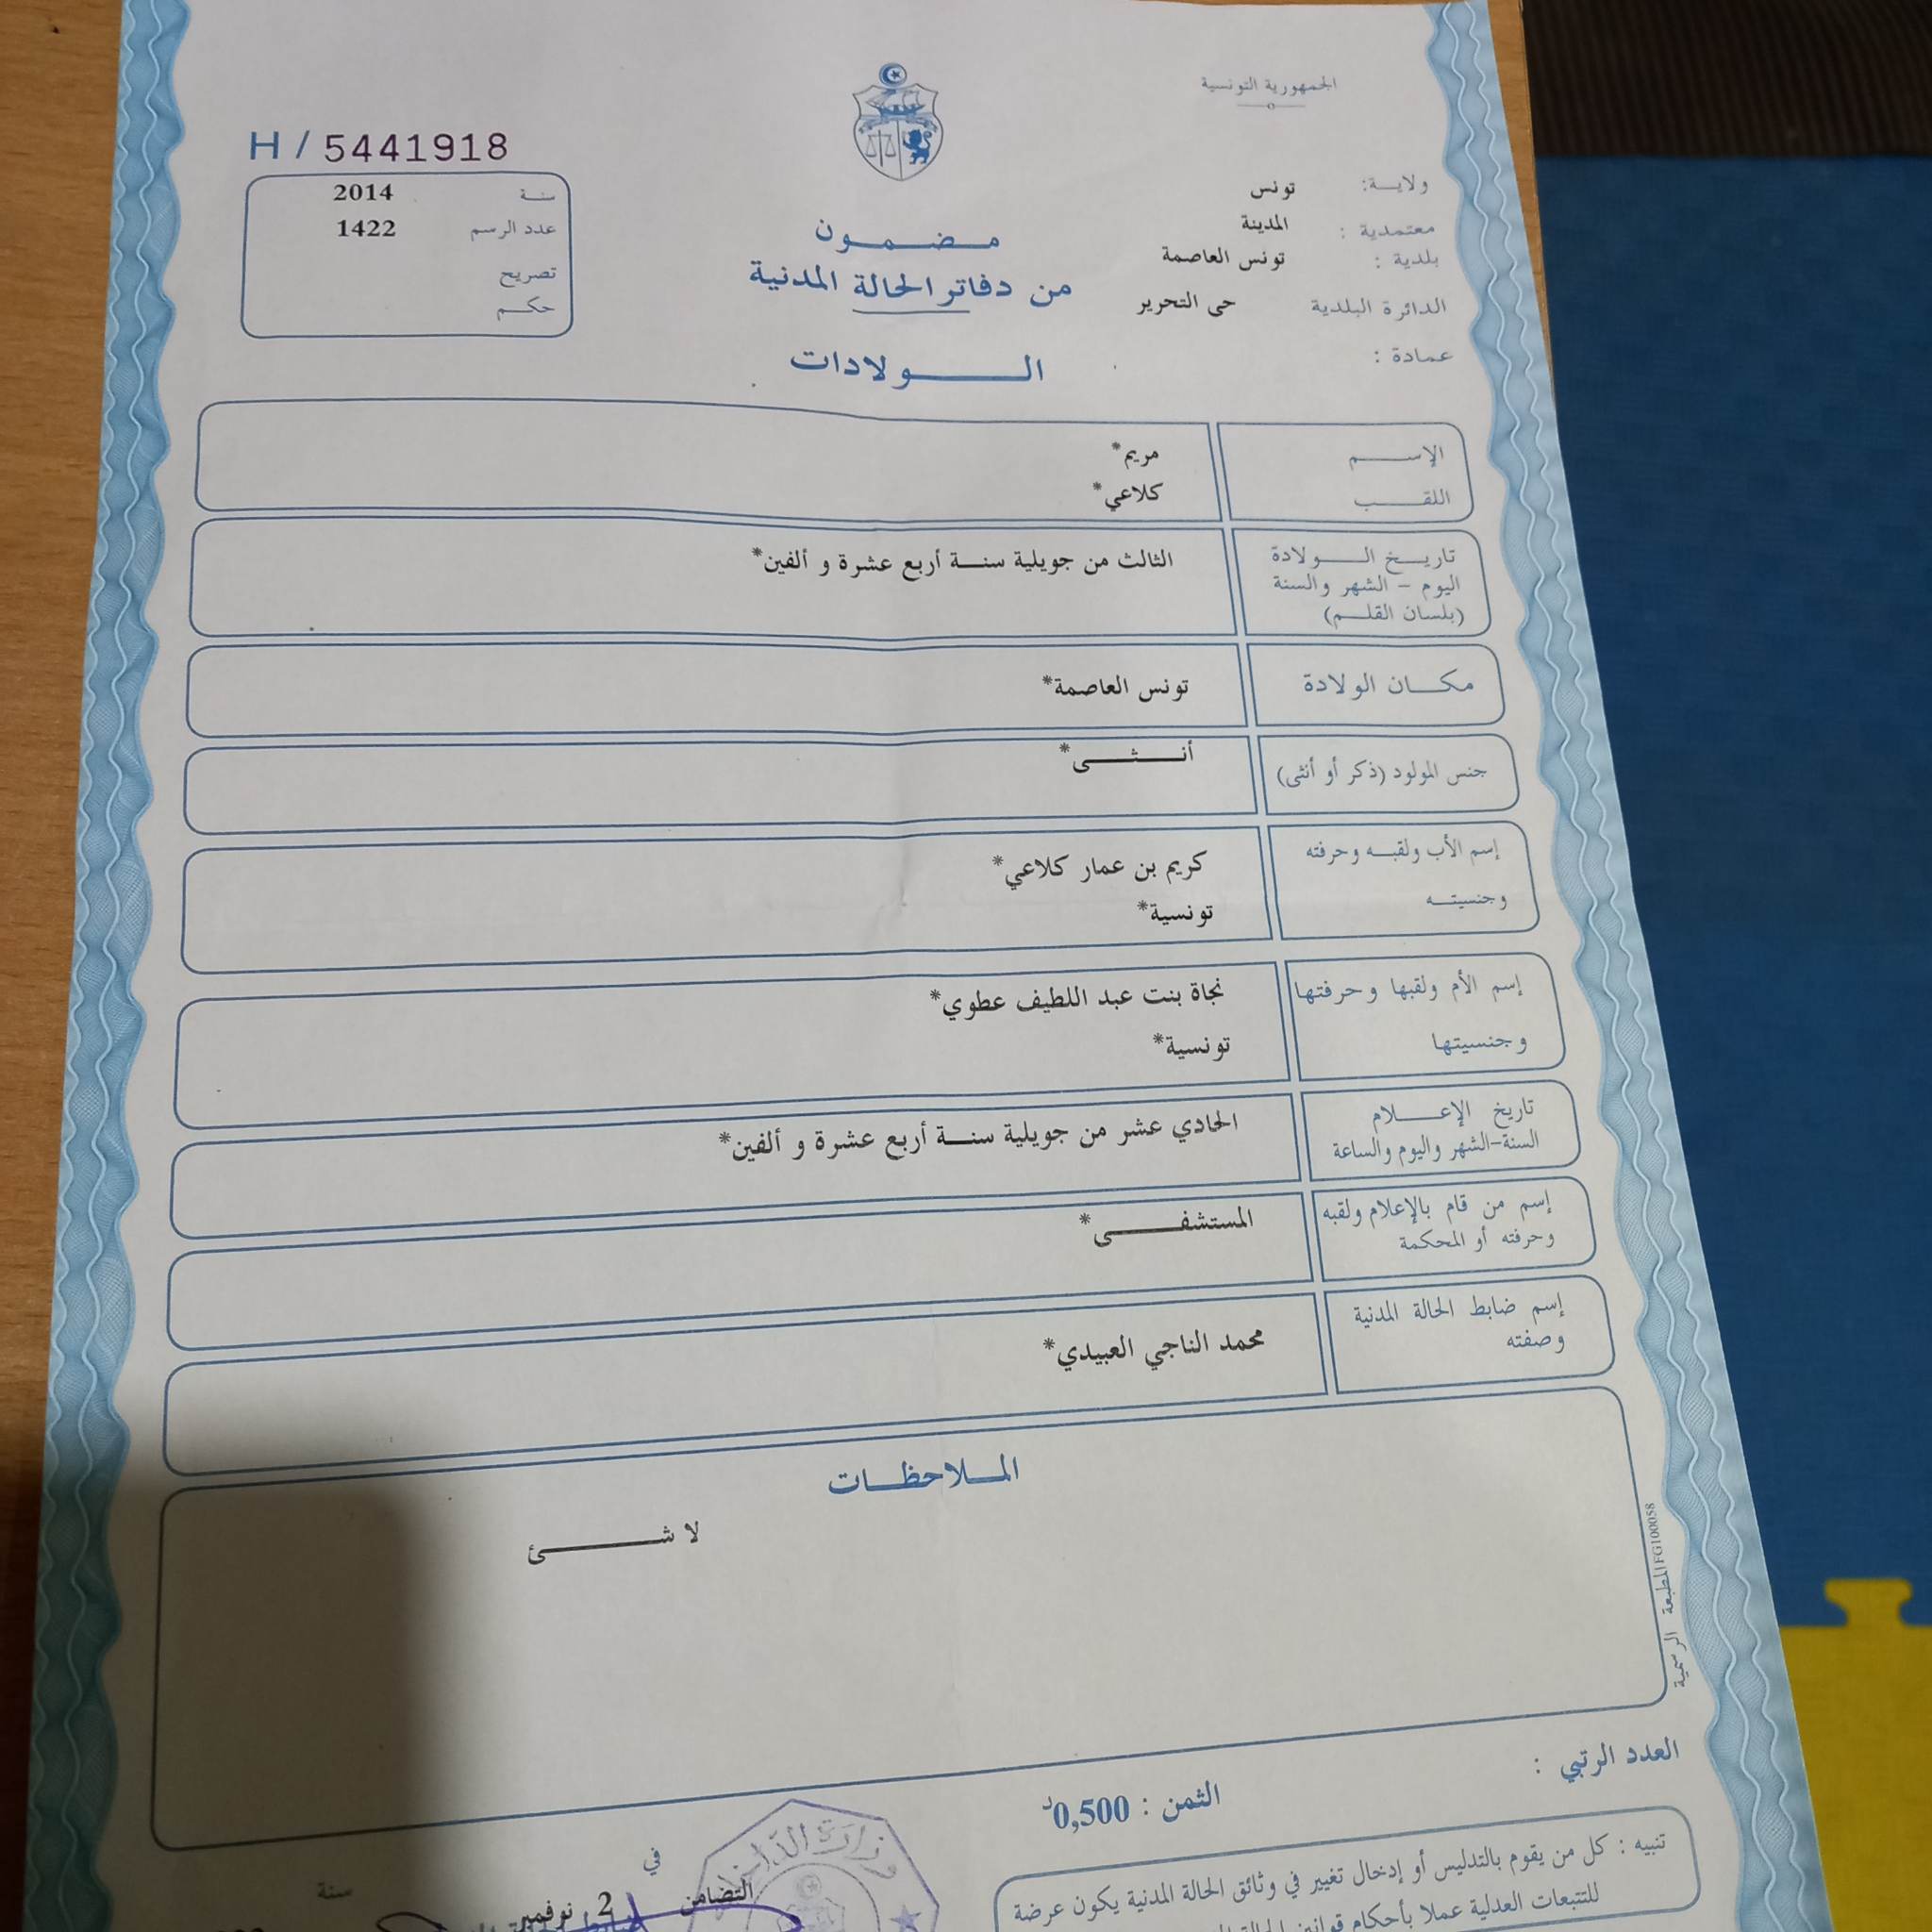 الجمهورية التونسية
H / 5441918
ولايـــة: تونس
معتمدية : المدينة
بلدية : تونس العاصمة
الدائرة البلدية حى التحرير
عمادة :
سنة 2014
عدد الرسم 1422
تصريح
حكم
مضمون
من دفاتر الحالة المدنية
الـولادات
الإسـم مريم*
اللقـب كلاعي*
تاريـخ الـولادة
اليوم - الشهر والسنة
(بلسان القلـم)
الثالث من جويلية سنـة أربع عشرة و ألفين*
مكـان الولادة تونس العاصمة*
جنس المولود (ذكر أو أنثى) أنـثـى*
إسم الأب ولقبـه وحرفته كريم بن عمار كلاعي*
وجنسيتـه تونسية*
إسم الأم ولقبها وحرفتها نجاة بنت عبد اللطيف عطوي*
وجنسيتها تونسية*
تاريخ الإعـلام
السنة-الشهر واليوم والساعة
الحادي عشر من جويلية سنـة أربع عشرة و ألفين*
إسم من قام بالإعلام ولقبه
وحرفته أو المحكمة
المستشفـى*
إسم ضابط الحالة المدنية
وصفته
محمد الناجي العبيدي*
المـلاحظـات
لا شـئ
المطبعة الرسمية FG100058
العدد الرتبي :
الثمن : 0,500د
تنبيه : كل من يقوم بالتدليس أو إدخال تغيير في وثائق الحالة المدنية يكون عرضة
للتتبعات العدلية عملا بأحكام
وزارة
التضامن في 2 نوفمبر سنة